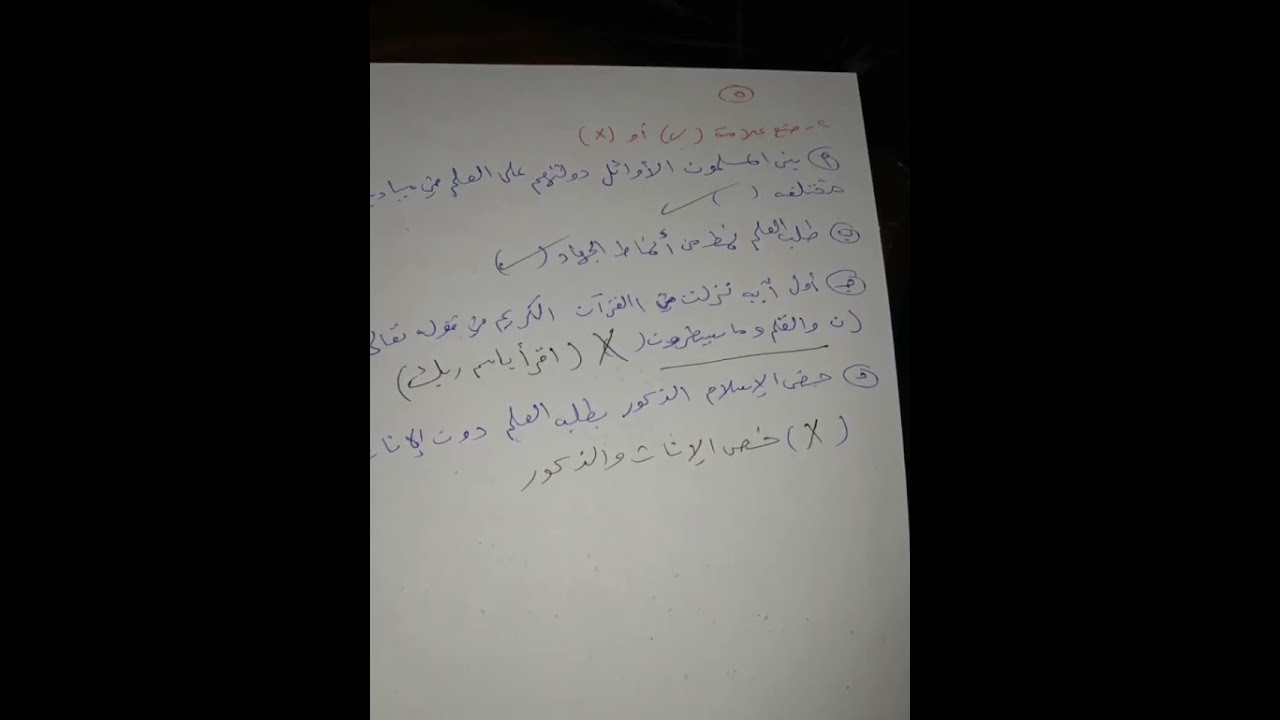 ٥
٢- ضع علامة (✓) أو (x)
أ بنى المسلمون الأوائل دولتهم على العلم في
مختلفه ( ✓ )
ب طلب العلم نمط من أنماط الجهاد (✓)
ج أول آيه نزلت من القرآن الكريم من قوله تعالى
(ن والقلم وما يسطرون( X (اقرأ باسم ربك)
د الإسلام الذكور بطلب العلم دون
( X ) خص الإناث والذكور